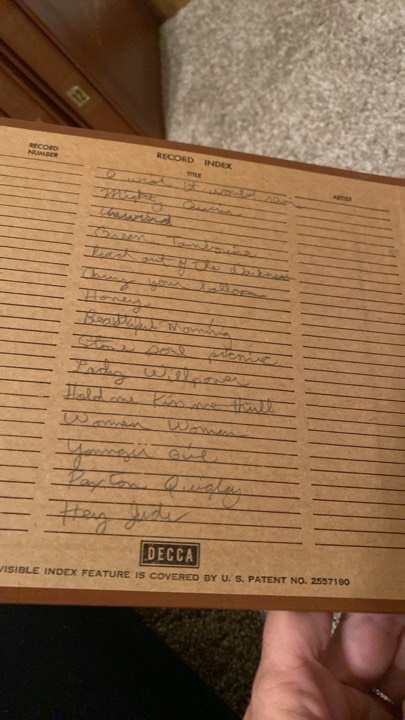 RECORD NUMBER
RECORD INDEX
TITLE
ARTIST
I wish it would rain
Mighty Quinn
Unwind
Green Tambourine
Reach out of the Darkness
Honey
Beautiful Morning
Stone soul picnic
Lady Willpower
Hold me Kiss me thrill
Women Women
Younger Girl
Paxton Quigley
Hey Jude
DECCA
VISIBLE INDEX FEATURE IS COVERED BY U. S. PATENT NO. 2557190